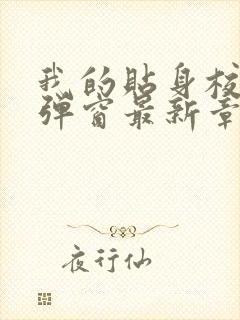 我的贴身校
弹窗最新章
夜行仙